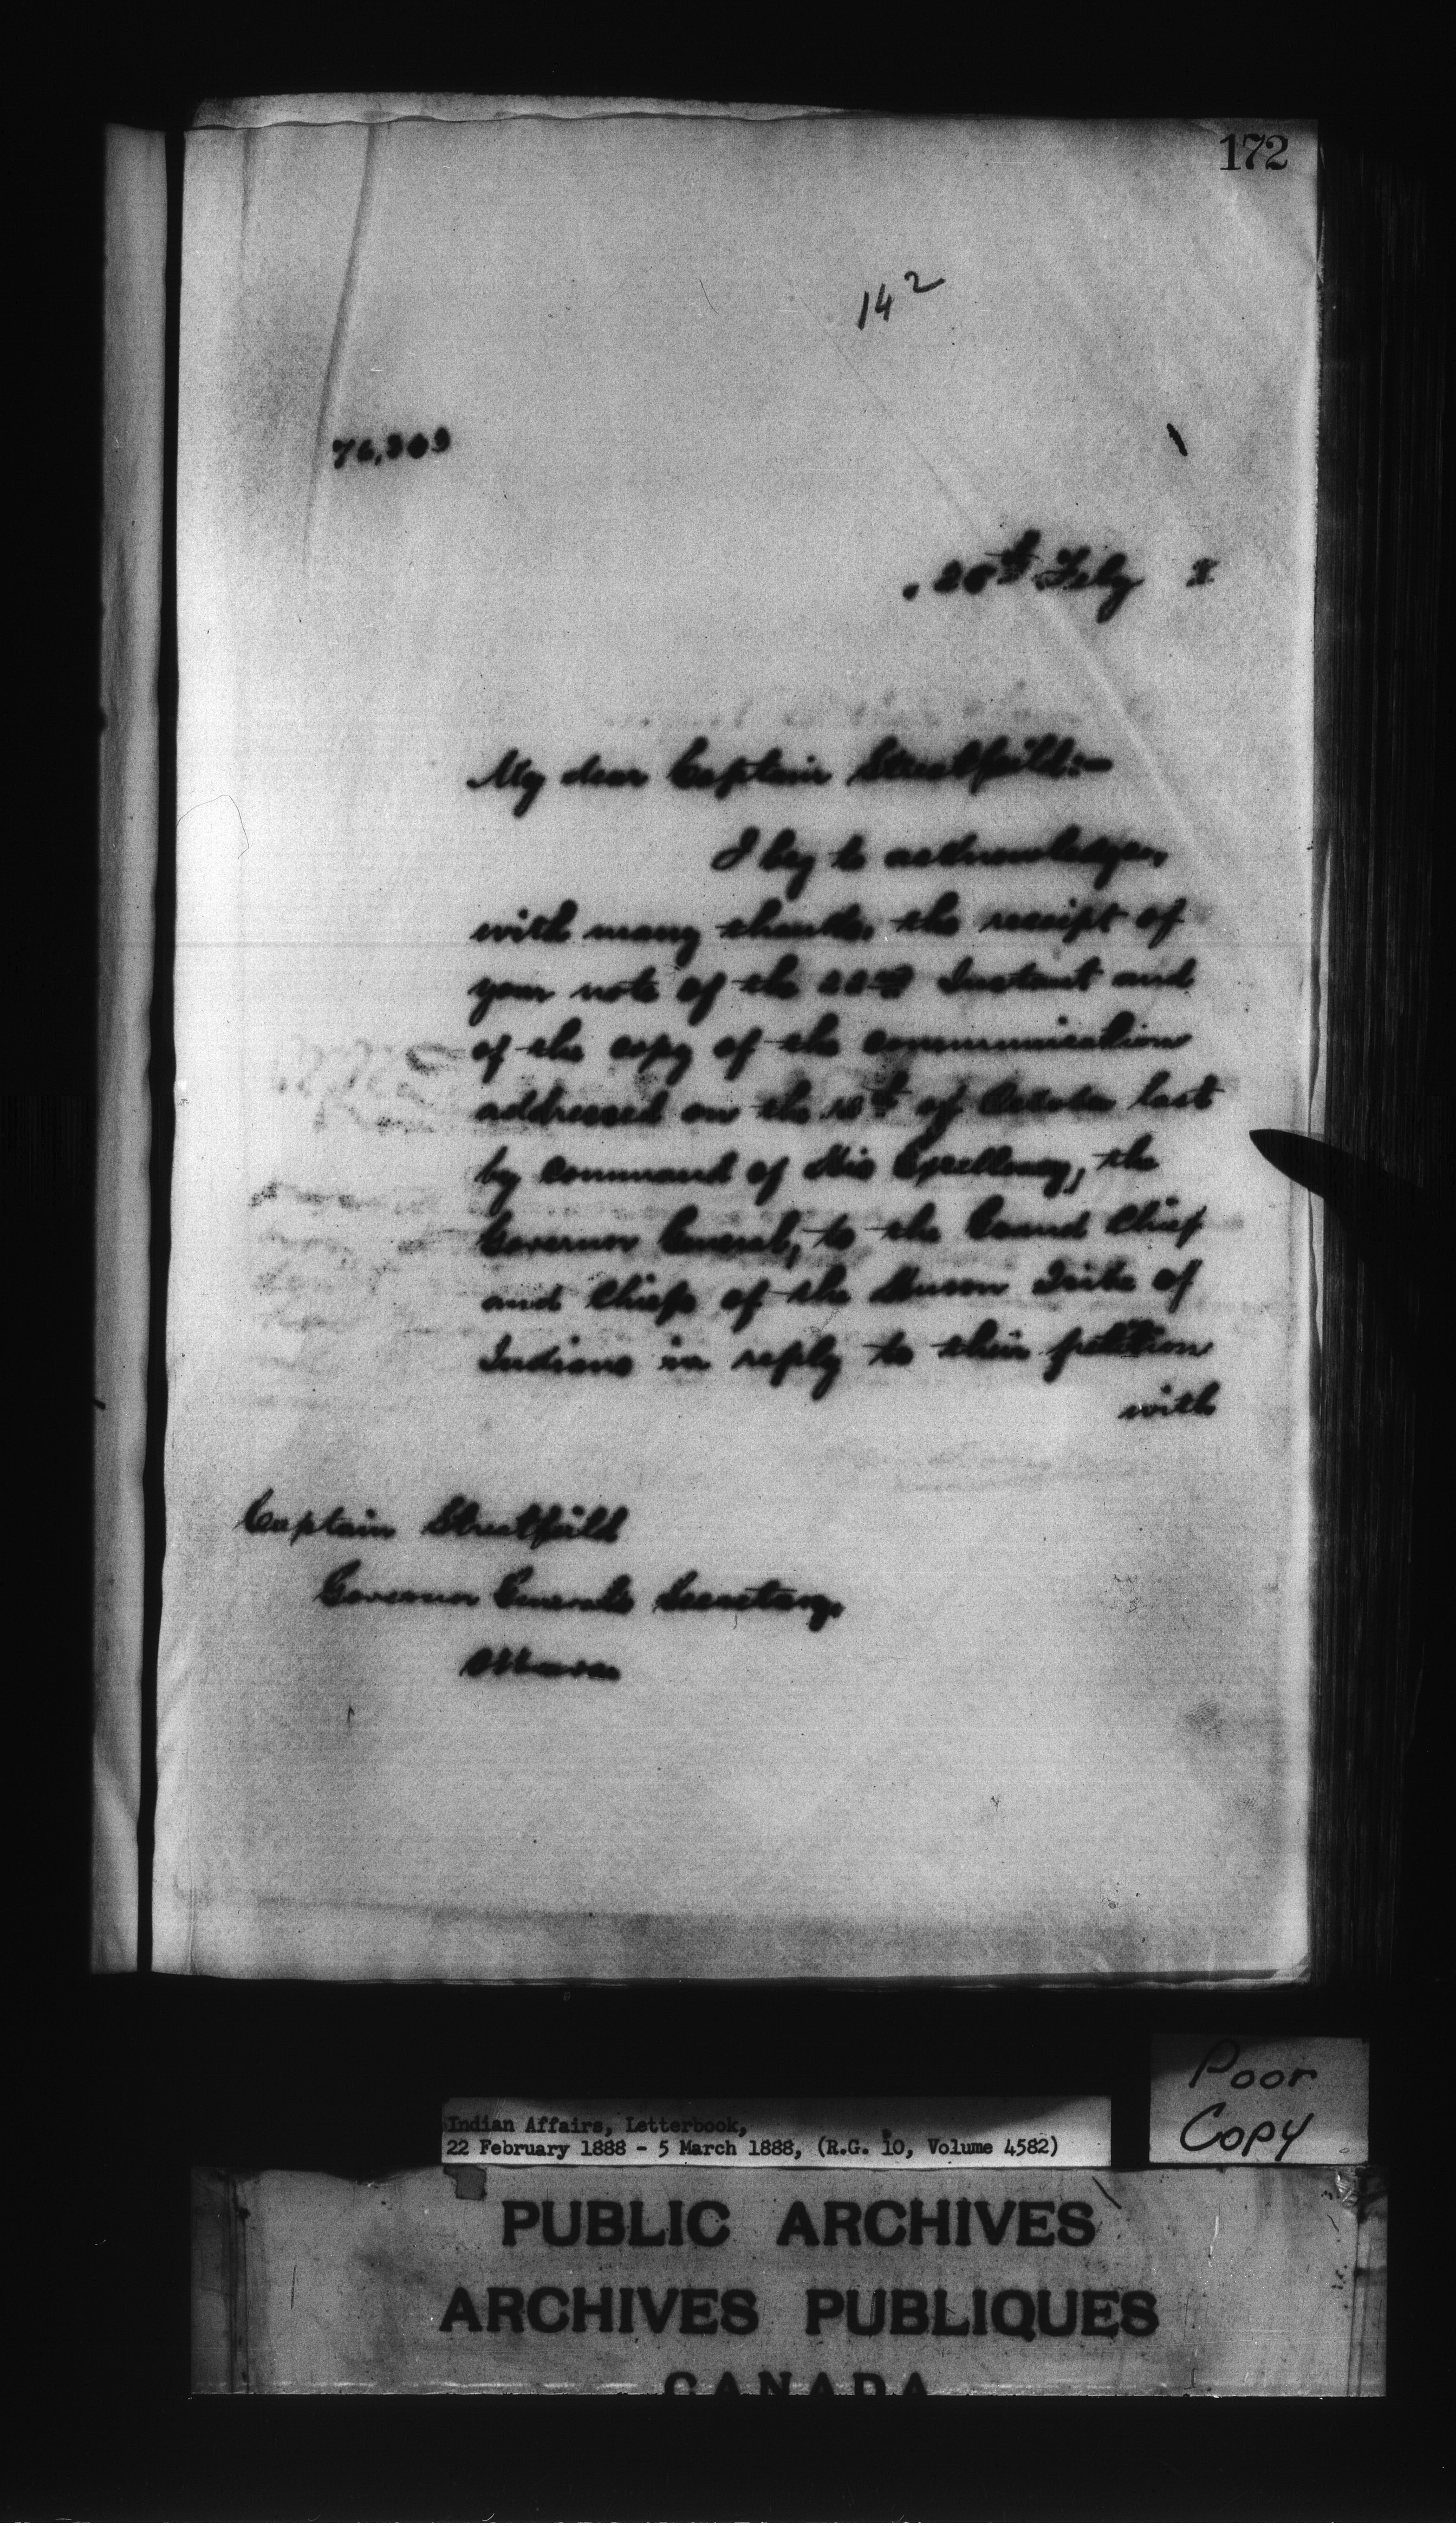 172
14 2
th Feby 8
My dear Captain Streatfeild:-
I beg to acknowledge,
with many thanks, the receipt of
your note of the 22nd Instant and
of the copy of the communication
addressed on the th of October last
by command of His Excellency, the
Governor General, to the Grand Chief
and Chiefs of the Huron Tribe of
Indians in reply to their petition
with
Captain Streatfeild
Governor General's Secretary,
Ottawa
Poor
Copy
Indian Affairs, Letterbook,
22 February 1888 - 5 March 1888, (R.G. 10, Volume 4582)
PUBLIC ARCHIVES
ARCHIVES PUBLIQUES
CANADA